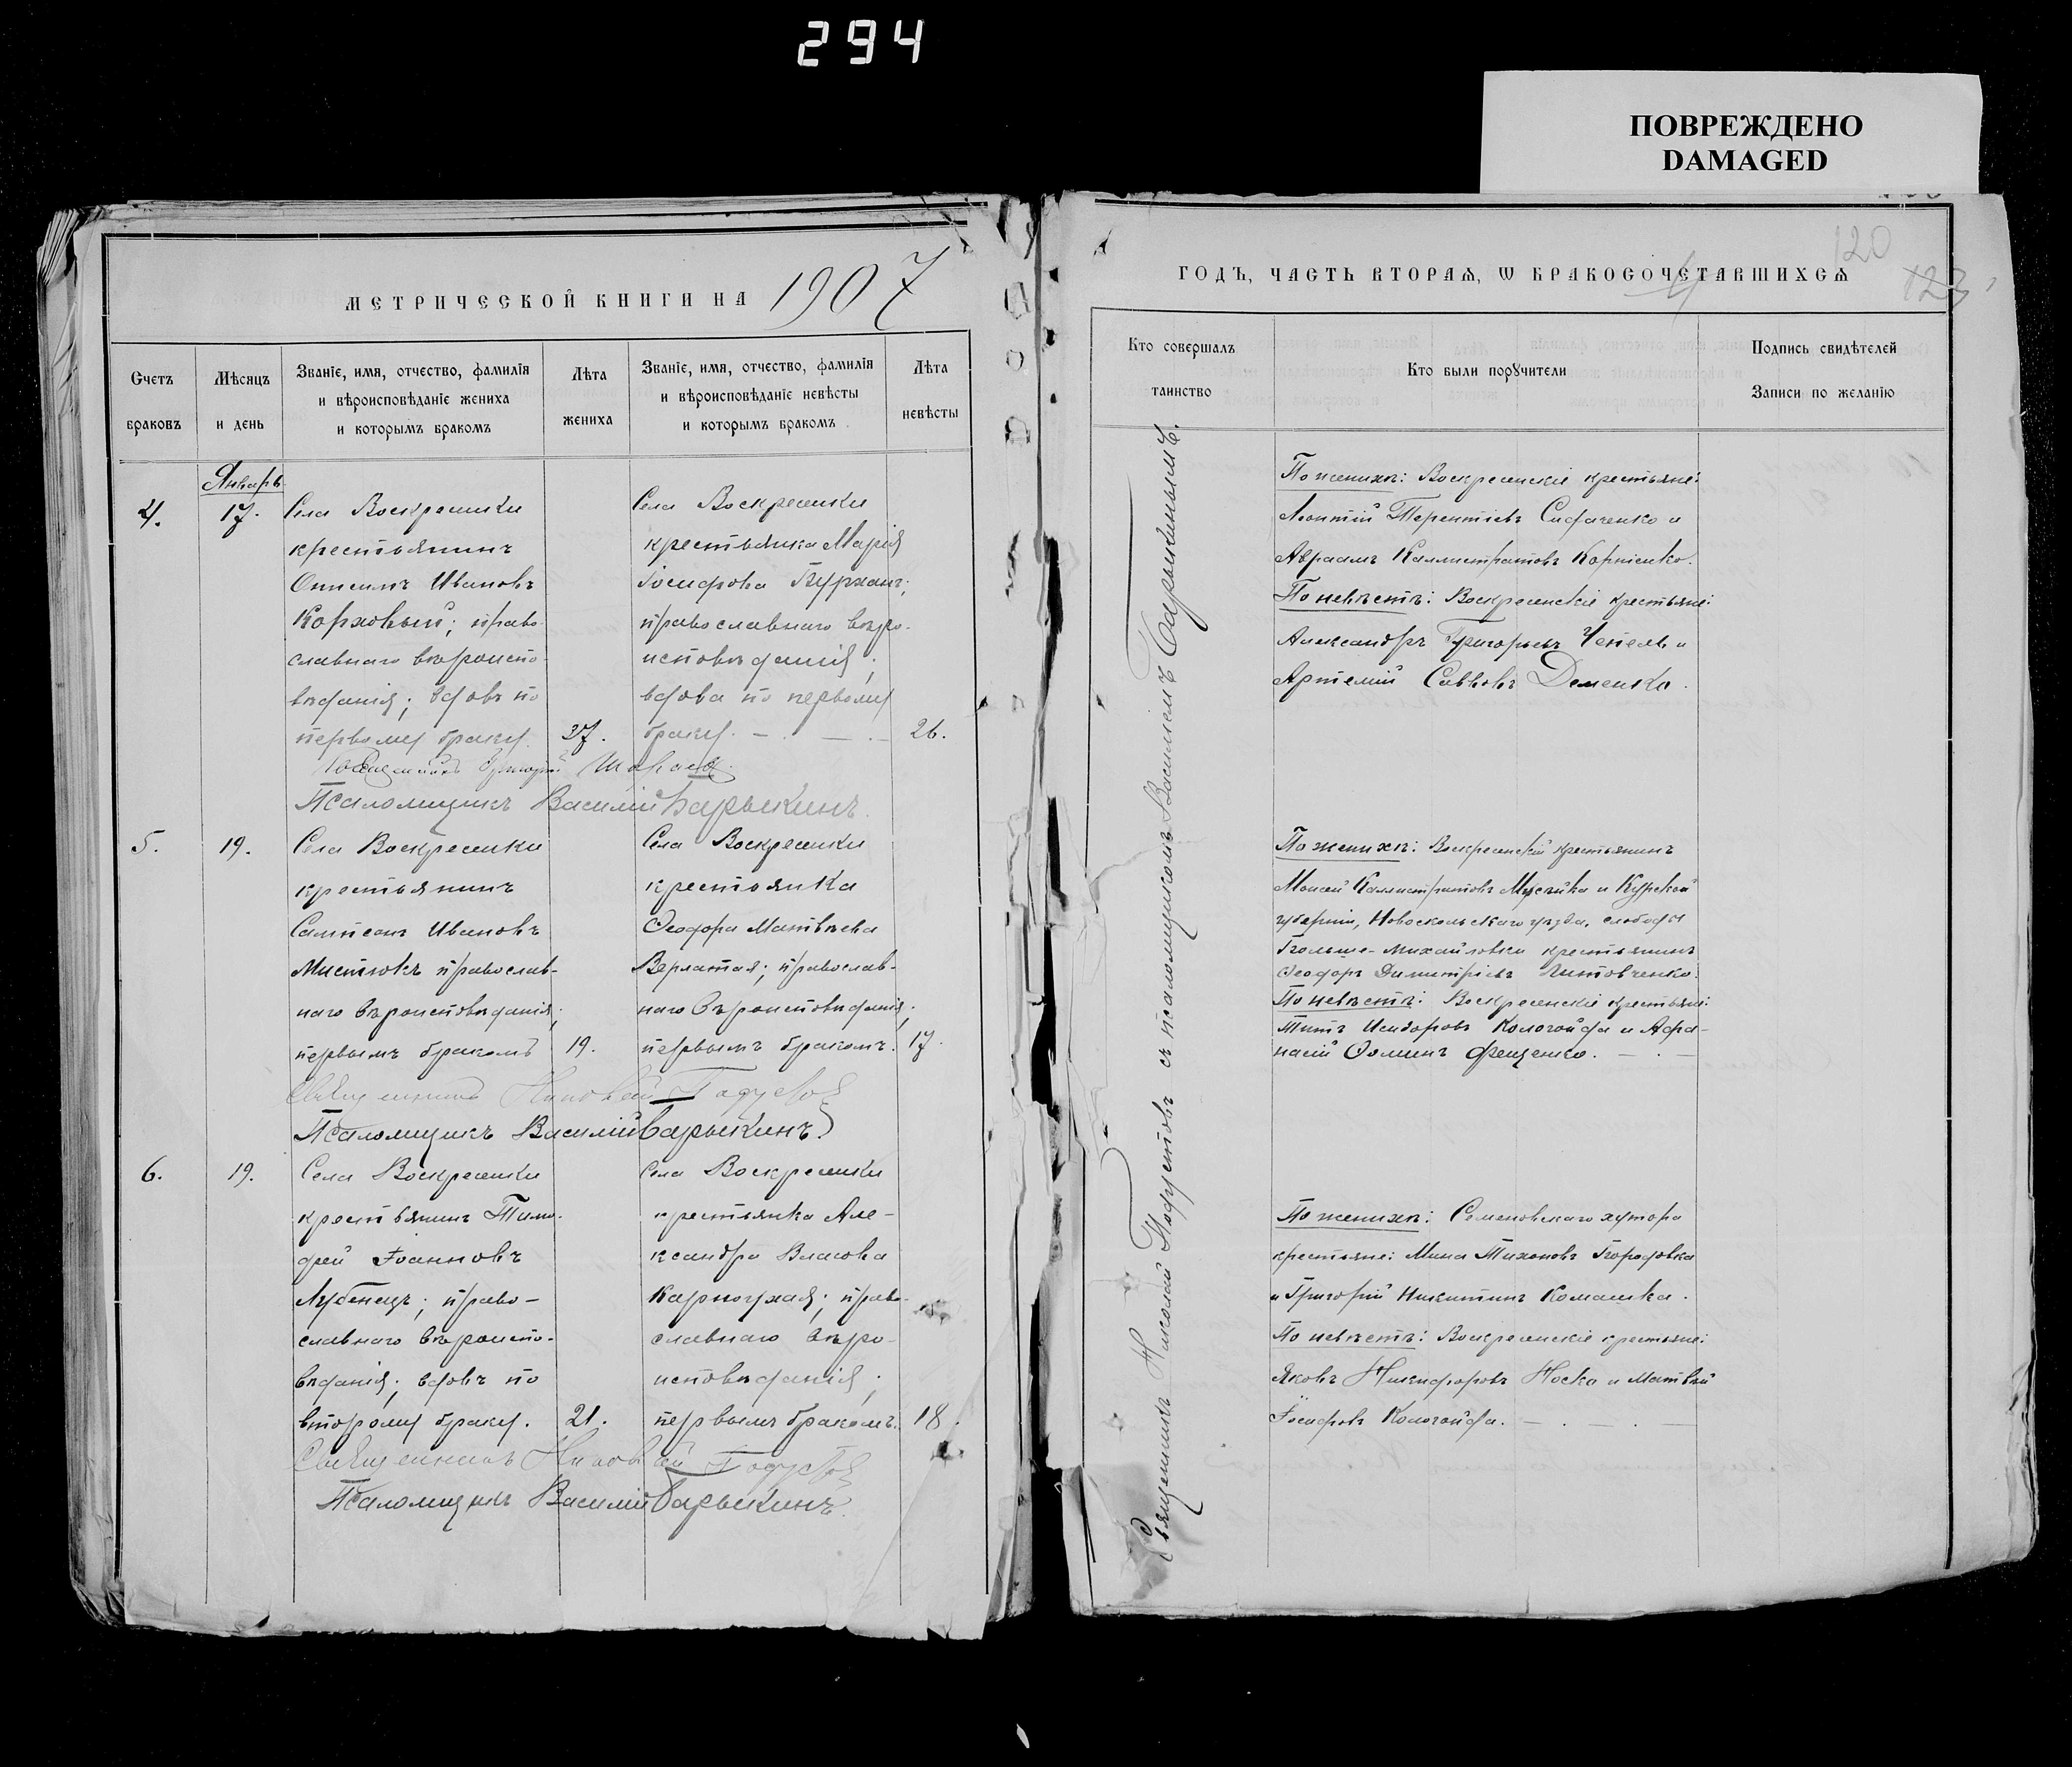 294
ПОВРЕЖДЕНО
DAMAGED
МЕТРИЧЕСКОЙ КНИГИ НА 1907
Счетъ браковъ
Мѣсяцъ и день
Званіе, имя, отчество, фамилія и вѣроисповѣданіе жениха и которымъ бракомъ
Лѣта жениха
Званіе, имя, отчество, фамилія и вѣроисповѣданіе невѣсты и которымъ бракомъ
Лѣта невѣсты
Январь
4.
17.
Села Воскресенки
крестьянинъ
Онисимъ Ивановъ
Корховый; право-
славнаго вѣроиспо-
вѣданія; вдовъ по
первому браку.
27.
Села Воскресенки
крестьянка Марія
Іосифова Бурханъ;
православнаго вѣро-
исповѣданія;
вдова по первому
браку. — . — . —
26.
Псаломщикъ Василій Барыкинъ.
5.
19.
Села Воскресенки
крестьянинъ
Сампсонъ Ивановъ
Мистюкъ православ-
наго вѣроисповѣданія;
первымъ бракомъ
19.
Села Воскресенки
крестьянка
Ѳеодора Матвѣева
Верлатая; православ-
наго вѣроисповѣданія;
первымъ бракомъ.
17.
Священникъ Николай Подустовъ
Псаломщикъ Василій Барыкинъ.
6.
19.
Села Воскресенки
крестьянинъ Тимо-
фей Іоанновъ
Лубенецъ; право-
славнаго вѣроиспо-
вѣданія; вдовъ по
второму браку.
21.
Села Воскресенки
крестьянка Але-
ксандра Власова
Карноухая; право-
славнаго вѣро-
исповѣданія;
первымъ бракомъ.
18.
Священникъ Николай Подустовъ
Псаломщикъ Василій Барыкинъ.
120
123
ГОДЪ, ЧАСТЬ ВТОРАЯ, Ѡ БРАКОСОЧЕТАВШИХСЯ
Кто совершалъ таинство
Кто были порꙋчители
Подпись свидѣтелей Записи по желанію
Священникъ Николай Подустовъ съ псаломщикомъ Василіемъ Барыкинымъ.
По женихѣ: Воскресенскіе крестьяне:
Леонтій Терентіевъ Сидоренко и
Авраамъ Каллистратовъ Корніенко.
По невѣстѣ: Воскресенскіе крестьяне:
Александръ Григорьевъ Чепель и
Артемій Саввовъ Деменко.
По женихѣ: Воскресенскій крестьянинъ
Моисей Каллистратовъ Мусѣйка и Курской
губерніи, Новоскольскаго уѣзда, слободы
Больше-Михайловки крестьянинъ
Ѳеодоръ Димитріевъ Литовченко.
По невѣстѣ: Воскресенскіе крестьяне:
Титъ Исидоровъ Кологойда и Афа-
насій Ѳоминъ Фещенко. — . —
По женихѣ: Семеновскаго хутора
крестьяне: Мина Тихоновъ Бородовка
и Григорій Никитинъ Комашка.
По невѣстѣ: Воскресенскіе крестьяне:
Яковъ Никифоровъ Носко и Матвѣй
Іосифовъ Кологойда. — . — . —